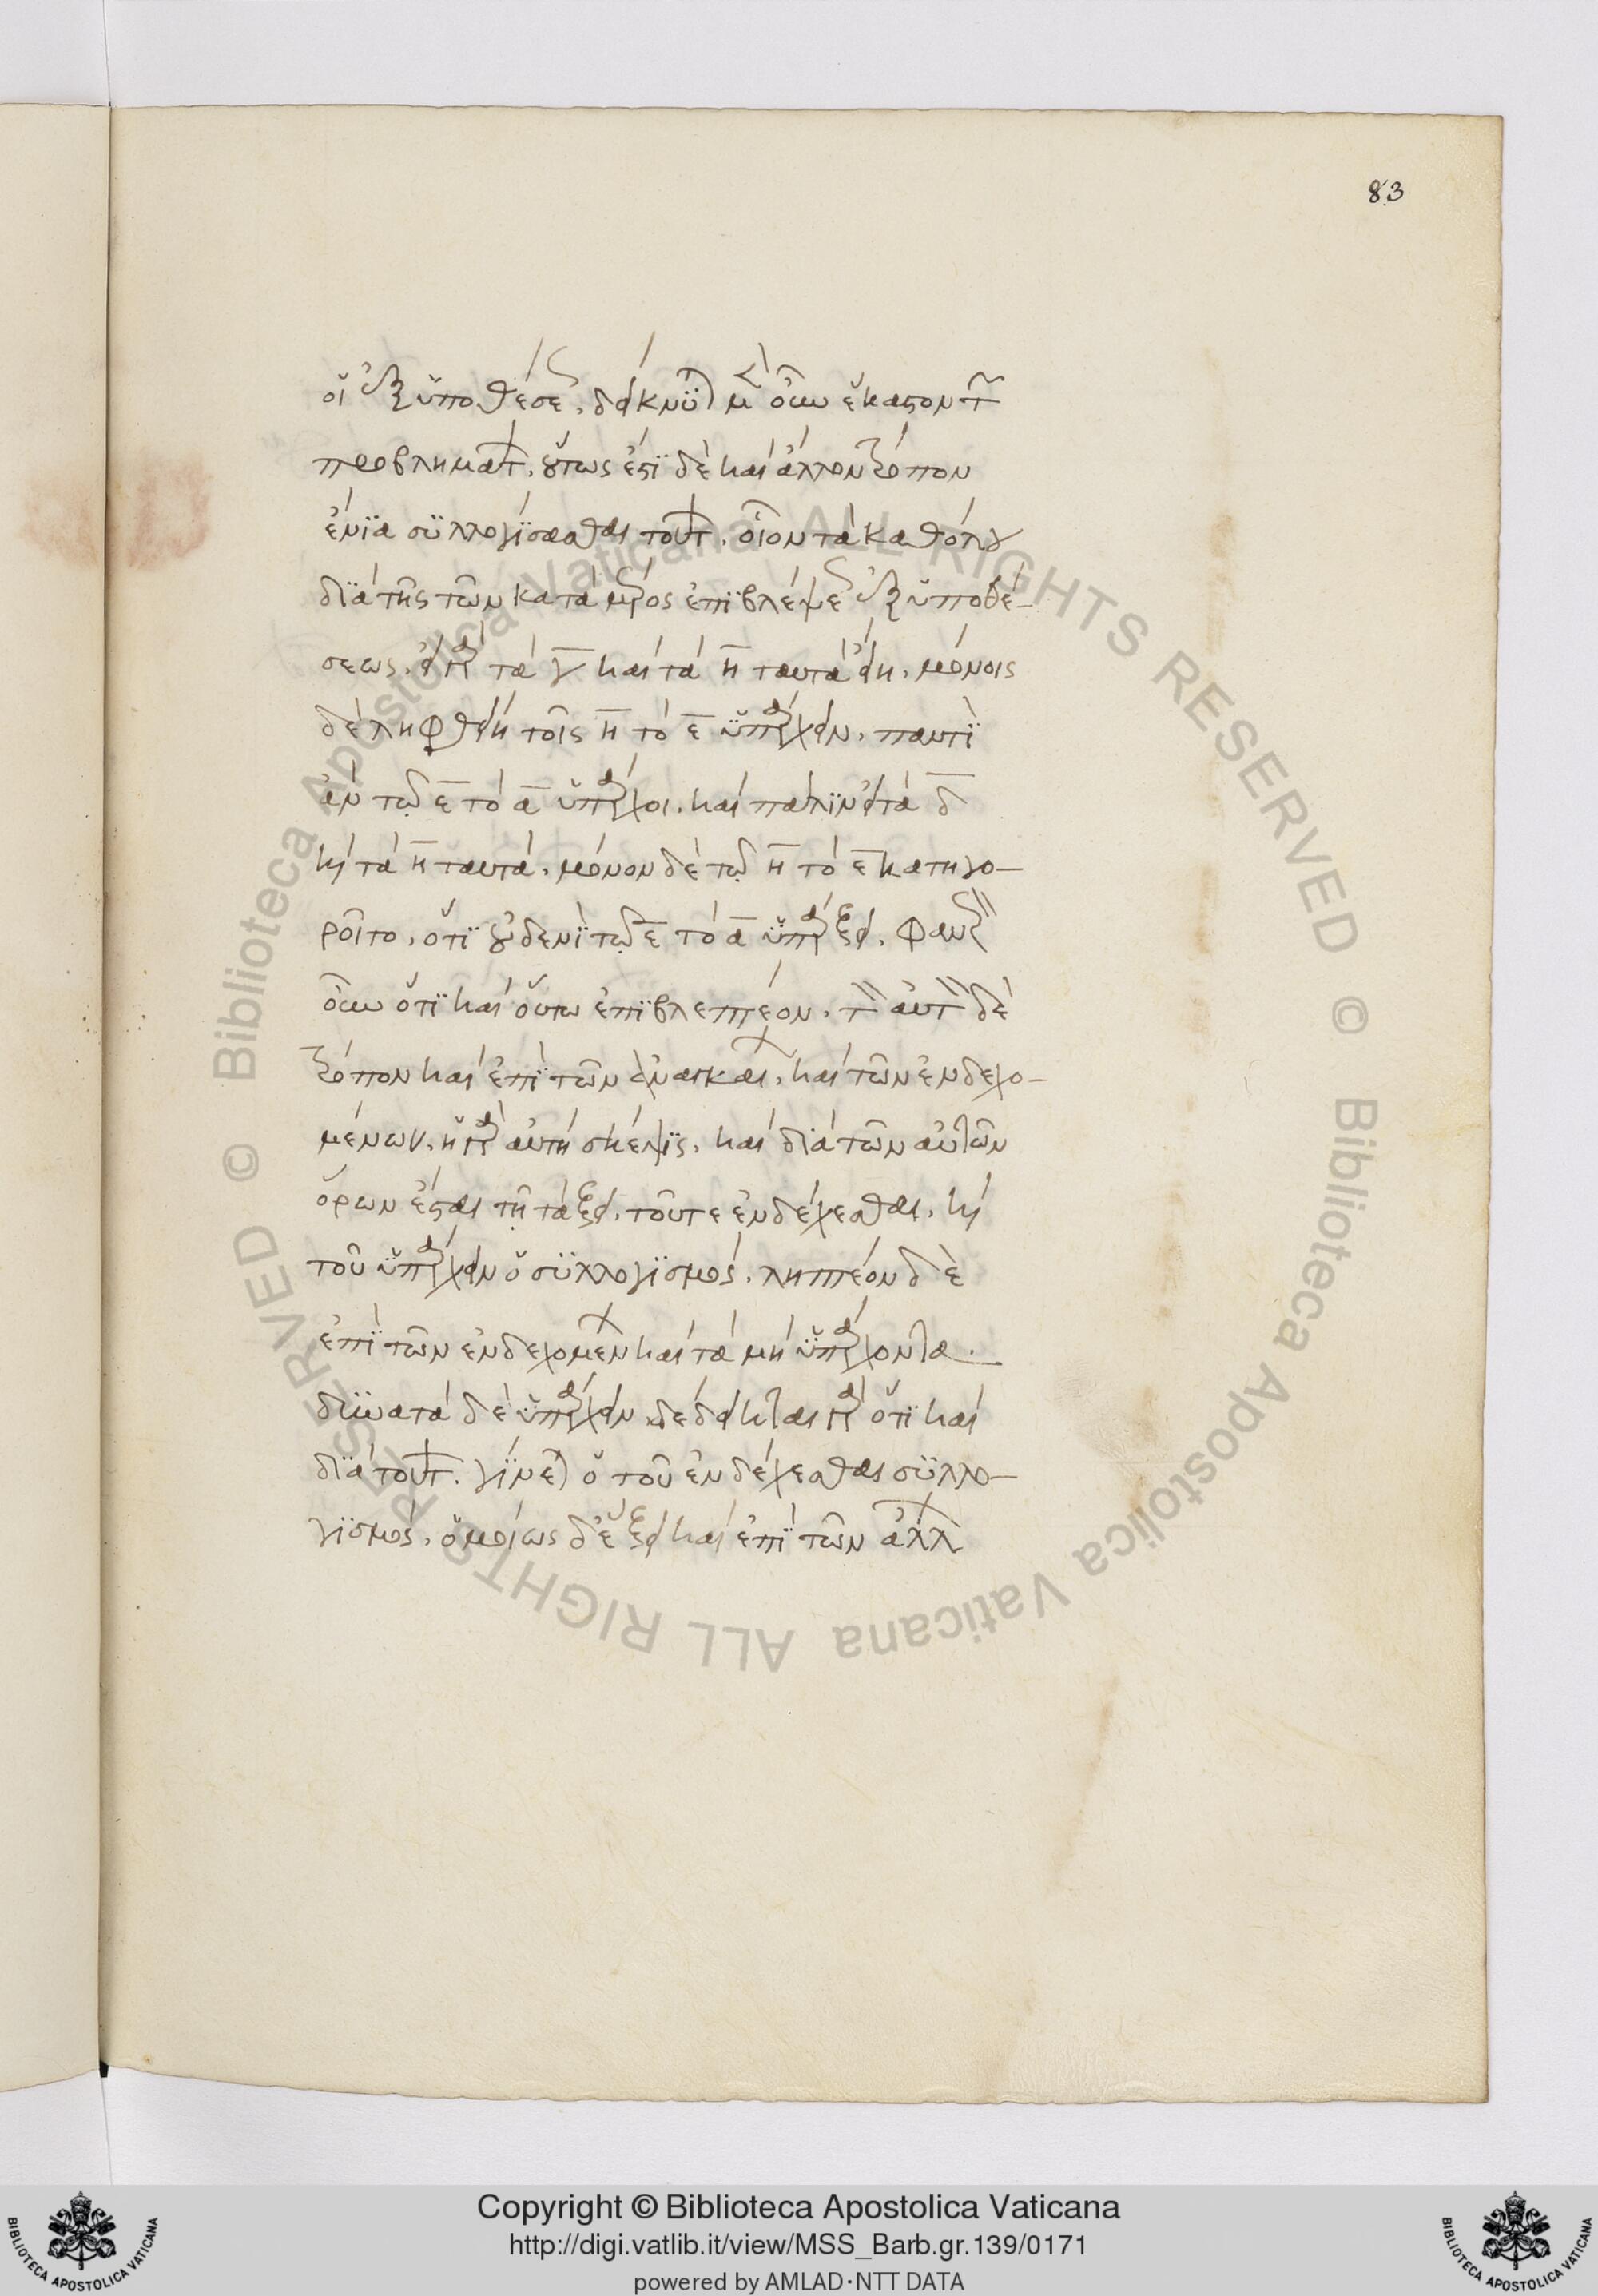 83
οἱ ἐξ ὑποθέσεως. δείκνυται μὲν οὖν ἕκαστον τῶν
προβλημάτων. οὕτως ἔστι δὲ καὶ ἄλλον τρόπον
ἔνια συλλογίσασθαι τούτων. οἷον τὰ καθόλου
διὰ τῆς τῶν κατὰ μέρος ἐπιβλέψεως ἐξ ὑποθέ-
σεως. εἰ γὰρ τὰ γ καὶ τὰ η ταυτὰ εἴη. μόνοις
δὲ ληφθείη τοῖς η τὸ ε ὑπάρχειν. παντὶ
ἂν τῷ ε τὸ α ὑπάρχοι. καὶ πάλιν εἰ τὰ δ
καὶ τὰ η ταυτά. μόνον δὲ τῷ η τὸ ε κατηγο-
ροῖτο. ὅτι οὐδενὶ τῷ ε τὸ α ὑπάρξει. φανερὸν
οὖν ὅτι καὶ οὕτω ἐπιβλεπτέον. τὸν αὐτὸν δὲ
τρόπον καὶ ἐπὶ τῶν ἀναγκαίων. καὶ τῶν ἐνδεχο-
μένων. ἡ γὰρ αὐτὴ σκέψις. καὶ διὰ τῶν αὐτῶν
ὅρων ἔσται τῇ τάξει. τοῦ τε ἐνδέχεσθαι. καὶ
τοῦ ὑπάρχειν ὁ συλλογισμός. ληπτέον δὲ
ἐπὶ τῶν ἐνδεχομένων καὶ τὰ μὴ ὑπάρχοντα.
δυνατὰ δὲ ὑπάρχειν. δέδεικται γὰρ ὅτι καὶ
διὰ τούτων. γίνεται ὁ τοῦ ἐνδέχεσθαι συλλο-
γισμός. ὁμοίως δὲ ἕξει καὶ ἐπὶ τῶν ἄλλων
Copyright © Biblioteca Apostolica Vaticana
http://digi.vatlib.it/view/MSS_Barb.gr.139/0171
powered by AMLAD·NTT DATA
BIBLIOTECA APOSTOLICA VATICANA
BIBLIOTECA APOSTOLICA VATICANA
© Biblioteca Apostolica Vaticana ALL RIGHTS RESERVED © Biblioteca Apostolica Vaticana ALL RIGHTS RESERVED